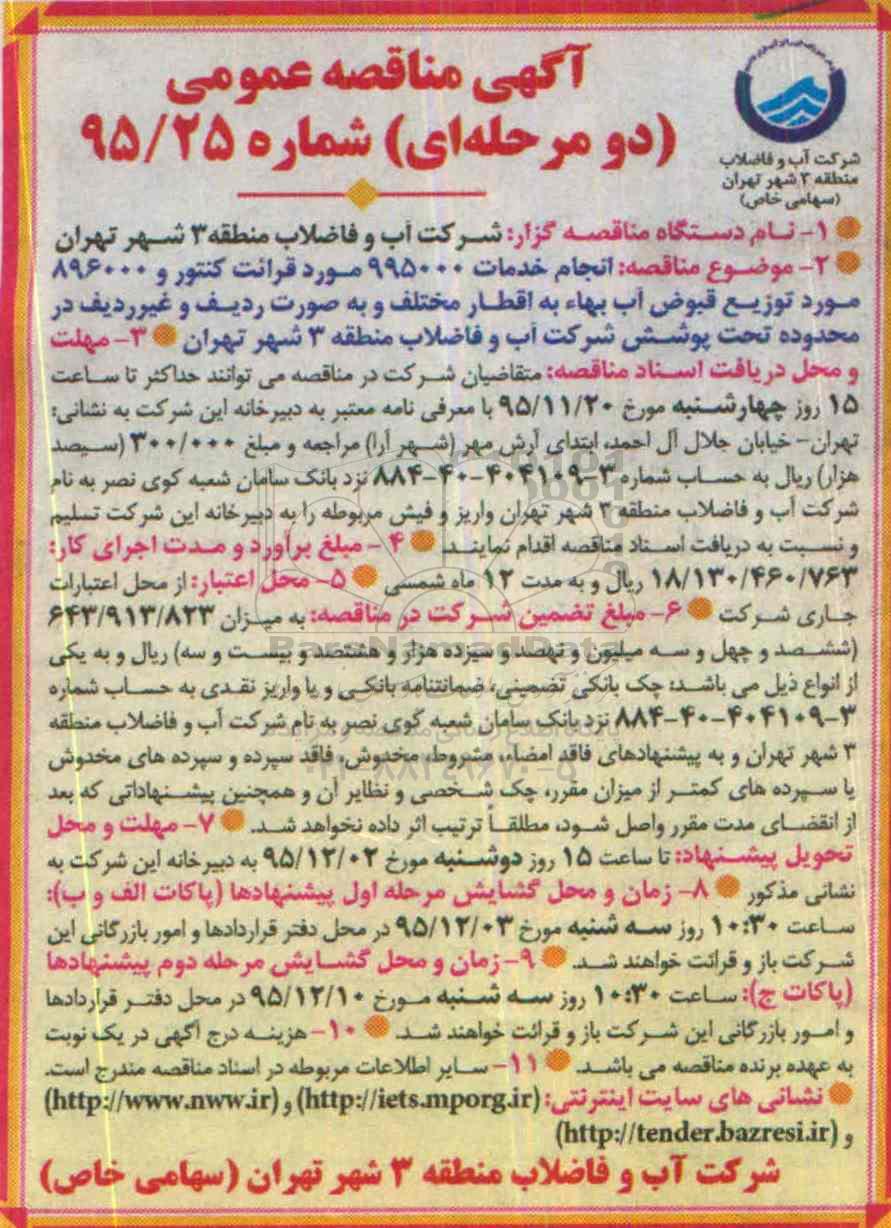 آگهی مناقصه عمومی
(دو مرحله‌ای) شماره ۹۵/۲۵
شرکت آب و فاضلاب
منطقه ۳ شهر تهران
(سهامی خاص)
۱- نـام دسـتگاه مناقصـه گزار: شـرکت آب و فاضلاب منطقه۳ شـهر تهران
۲- موضـوع مناقصه: انجام خدمات ۹۹۵۰۰۰ مـورد قرائت کنتور و ۸۹۶۰۰۰
مـورد توزیـع قبوض آب بهاء به اقطـار مختلف و به صورت ردیـف و غیرردیف در
محدوده تحت پوشـش شرکت آب و فاضلاب منطقه ۳ شهر تهران ۳- مهلت
و محل دریافت اسـناد مناقصه: متقاضیان شـرکت در مناقصه می توانند حداکثر تا سـاعت
۱۵ روز چهارشـنبه مورخ ۹۵/۱۱/۲۰ با معرفی نامه معتبر به دبیرخانه این شرکت به نشانی:
تهران- خیابان جلال آل احمد، ابتدای آرش مهر (شـهر آرا) مراجعه و مبلغ ۳۰۰/۰۰۰ (سـیصد
هزار) ریال به حسـاب شماره ۳-۴۰۴۱۰۹-۴۰-۸۸۴ نزد بانک سامان شعبه کوی نصر به نام
شرکت آب و فاضلاب منطقه ۳ شهر تهران واریز و فیش مربوطه را به دبیرخانه این شرکت تسلیم
و نسـبت به دریافت اسـناد مناقصه اقدام نمایند. ۴- مبلغ برآورد و مـدت اجرای کار:
۱۸/۱۳۰/۴۶۰/۷۶۳ ریال و به مدت ۱۲ ماه شمسی ۵- محل اعتبار: از محل اعتبارات
جـاری شـرکت ۶- مبلغ تضمین شـرکت در مناقصه: به میـزان ۶۴۳/۹۱۳/۸۲۳
(ششـصد و چهل و سـه میلیون و نهصد و سیزده هزار و هشتصد و بیسـت و سه) ریال و به یکی
از انواع ذیل می باشـد: چک بانکی تضمینی، ضمانتنامه بانکـی و یا واریز نقـدی به حسـاب شماره
۳-۴۰۴۱۰۹-۴۰-۸۸۴ نزد بانک سامان شعبه کوی نصر به نام شرکت آب و فاضلاب منطقه
۳ شهر تهران و به پیشنهادهای فاقد امضاء، مشروط، مخدوش، فاقد سپرده و سپرده های مخدوش
یا سـپرده های کمتـر از میزان مقرر، چک شـخصی و نظایر آن و همچنین پیشـنهاداتی که بعد
از انقضـای مدت مقرر واصل شـود، مطلقـاً ترتیب اثر داده نخواهد شـد. ۷- مهلت و محل
تحویل پیشـنهاد: تا ساعت ۱۵ روز دوشـنبه مورخ ۹۵/۱۲/۰۲ به دبیرخانه این شرکت به
نشانی مذکور ۸- زمان و محل گشایش مرحله اول پیشنهادها (پاکات الف و ب):
سـاعت ۱۰:۳۰ روز سـه شنبه مورخ ۹۵/۱۲/۰۳ در محل دفتر قراردادها و امور بازرگانی این
شـرکت باز و قرائت خواهند شـد. ۹- زمان و محل گشـایش مرحله دوم پیشنهادها
(پاکات ج): سـاعت ۱۰:۳۰ روز سـه شـنبه مـورخ ۹۵/۱۲/۱۰ در محل دفتـر قراردادها
و امـور بازرگانی این شـرکت باز و قرائت خواهند شـد. ۱۰- هزینـه درج آگهی در یک نوبت
به عهده برنده مناقصه می باشـد. ۱۱- سـایر اطلاعات مربوطه در اسناد مناقصه مندرج است.
نشـانی های سـایت اینترنتی: (http://iets.mporg.ir) و (http://www.nww.ir)
و (http://tender.bazresi.ir)
شرکت آب و فاضلاب منطقه ۳ شهر تهران (سهامی خاص)